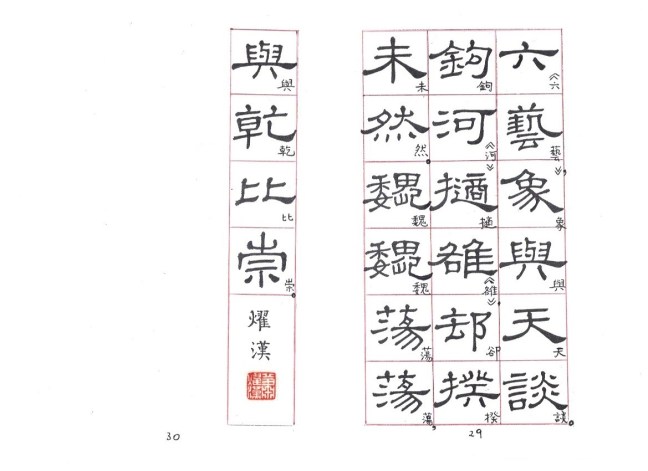 六藝象與天談
《六藝》,象與天談。
鉤河擿雒却揆
鉤《河》擿《雒》,卻揆
未然魏魏蕩蕩
未然。魏魏蕩蕩,
29
與乾比崇
與乾比崇。
燿漢
30